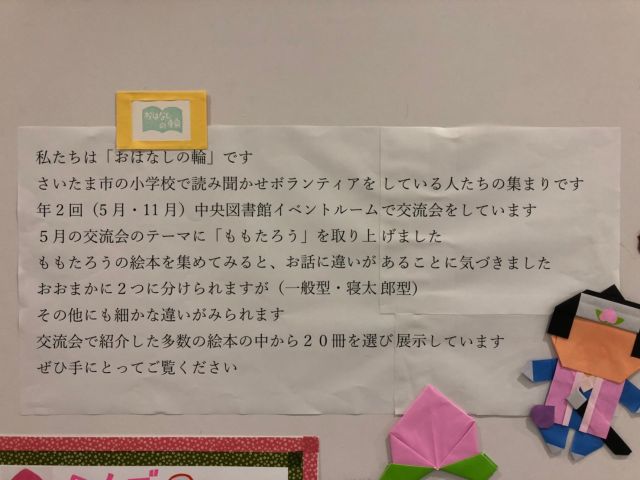 おはなし
の輪
私たちは「おはなしの輪」です
さいたま市の小学校で読み聞かせボランティアをしている人たちの集まりです
年２回（５月・11月）中央図書館イベントルームで交流会をしています
５月の交流会のテーマに「ももたろう」を取り上げました
ももたろうの絵本を集めてみると、お話に違いがあることに気づきました
おおまかに２つに分けられますが（一般型・寝太郎型）
その他にも細かな違いがみられます
交流会で紹介した多数の絵本の中から２０冊を選び展示しています
ぜひ手にとってご覧ください